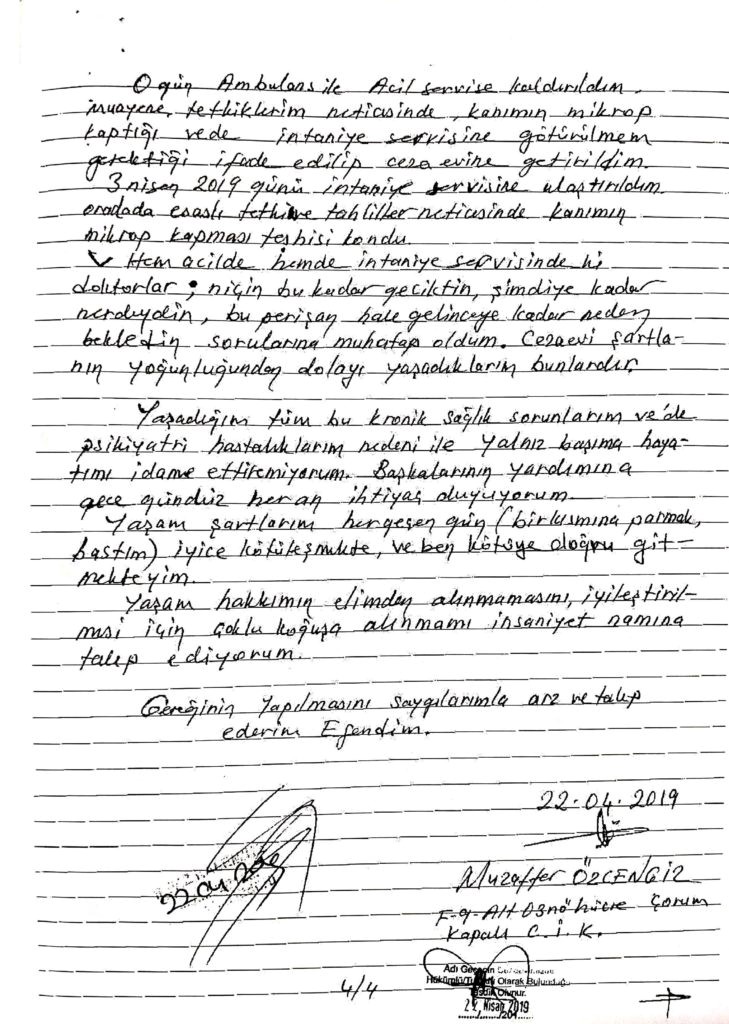 O gün Ambulans ile Acil servise kaldırıldım.
muayene, tetkiklerim neticesinde, kanımın mikrop
kaptığı vede intaniye servisine götürülmem
gerektiği ifade edilip ceza evine getirildim.
3 nisan 2019 günü intaniye servisine ulaştırıldım.
oradada esaslı tetkik ve tahliller neticesinde kanımın
mikrop kapması teşhisi kondu.
Hem acilde hemde intaniye servisinde ki
doktorlar; niçin bu kadar geciktin, şimdiye kadar
nerdeydin, bu perişan hale gelinceye kadar neden
bekledin sorularına muhatap oldum. Cezaevi şartla-
nın yoğunluğundan dolayı yaşadıklarım bunlardır.
Yaşadığım tüm bu kronik sağlık sorunlarım ve'de
psikiyatri hastalıklarım nedeni ile yalnız başıma haya-
tımı idame ettiremiyorum. Başkalarının yardımına
gece gündüz her an ihtiyaç duyuyorum.
Yaşam şartlarım hergeçen gün (bir kısmına parmak
bastım) iyice kötüleşmekte, ve ben kötüye doğru git-
mekteyim.
Yaşam hakkımın elimden alınmamasını, iyileştiril-
mesi için çoklu koğuşa alınmamı insaniyet namına
talep ediyorum.
Gereğinin yapılmasını saygılarımla arz ve talep
ederim Efendim.
22.04.2019
Muzaffer ÖZCENGİZ
F-9-Alt Çorum
Kapalı C.İ.K.
Adı Geçenin
Olarak Bulunduğu
Olunur.
22 Nisan 2019
4/4